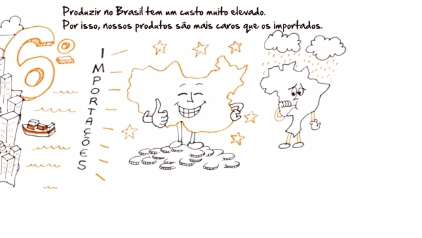 Produzir no Brasil tem um custo muito elevado.
Por isso, nossos produtos são mais caros que os importados.
6º
IMPORTAÇÕES